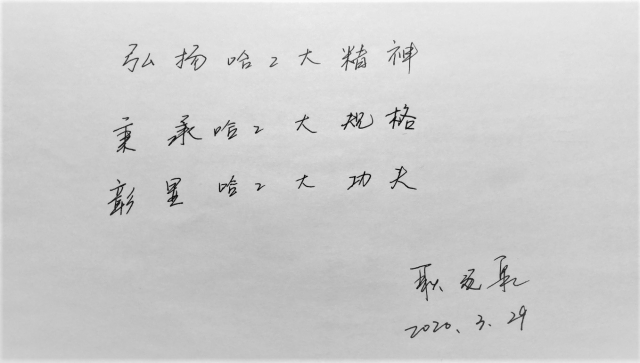 弘扬哈工大精神
秉承哈工大规格
彰显哈工大功夫
2020.3.29